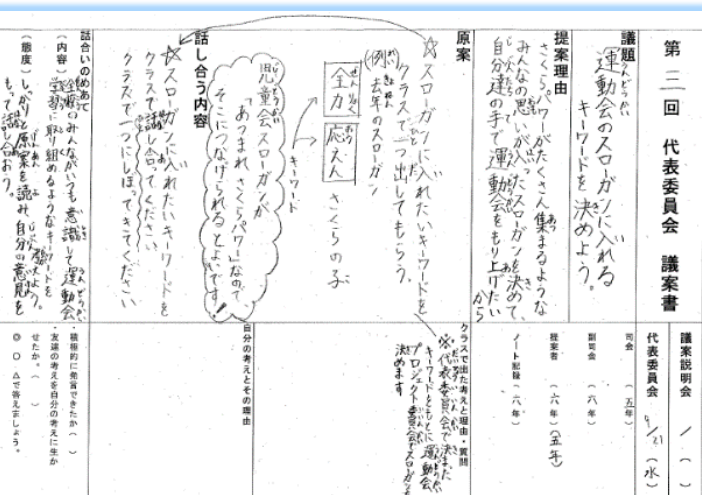 第 三 回 代表委員会 議案書
議題
運動会のスローガンに入れる
キーワードを決めよう。
提案理由
さくらパワーがたくさん集まるような
みんなの思いが入ったスローガンを決めて、
自分達の手で運動会をもり上げたいから
原案
☆スローガンに入れたいキーワードを
クラスで一つ出してもらう。
(例)去年のスローガン
全力 応えん さくらの子
キーワード
児童会スローガンが
「あつまれ さくらパワー」なので、
そこにつなげられるとよいです!
話し合う内容
☆スローガンに入れたいキーワードを
クラスで話し合ってください
クラスで一つにしぼってきてください
話合いのめあて
(内容)全校のみんながいつも意識して運動会
学習に取り組めるようなキーワードを
考えよう。
(態度)しっかりと原案を読み、自分の意見を
もって話し合おう。
議案説明会 / ( )
代表委員会 9/21 (水)
司会 (五年)
副司会 (六年)
提案者 (六年)(五年)
ノート記録 (六年)
クラスで出た考えと理由・質問
※代表委員会で決まった
キーワードをもとに運動会
プロジェクト委員会でスローガンを
決めます
自分の考えとその理由
・積極的に発言できたか( )
・友達の考えを自分の考えに生か
せたか。( )
◎ ○ △で答えましょう。